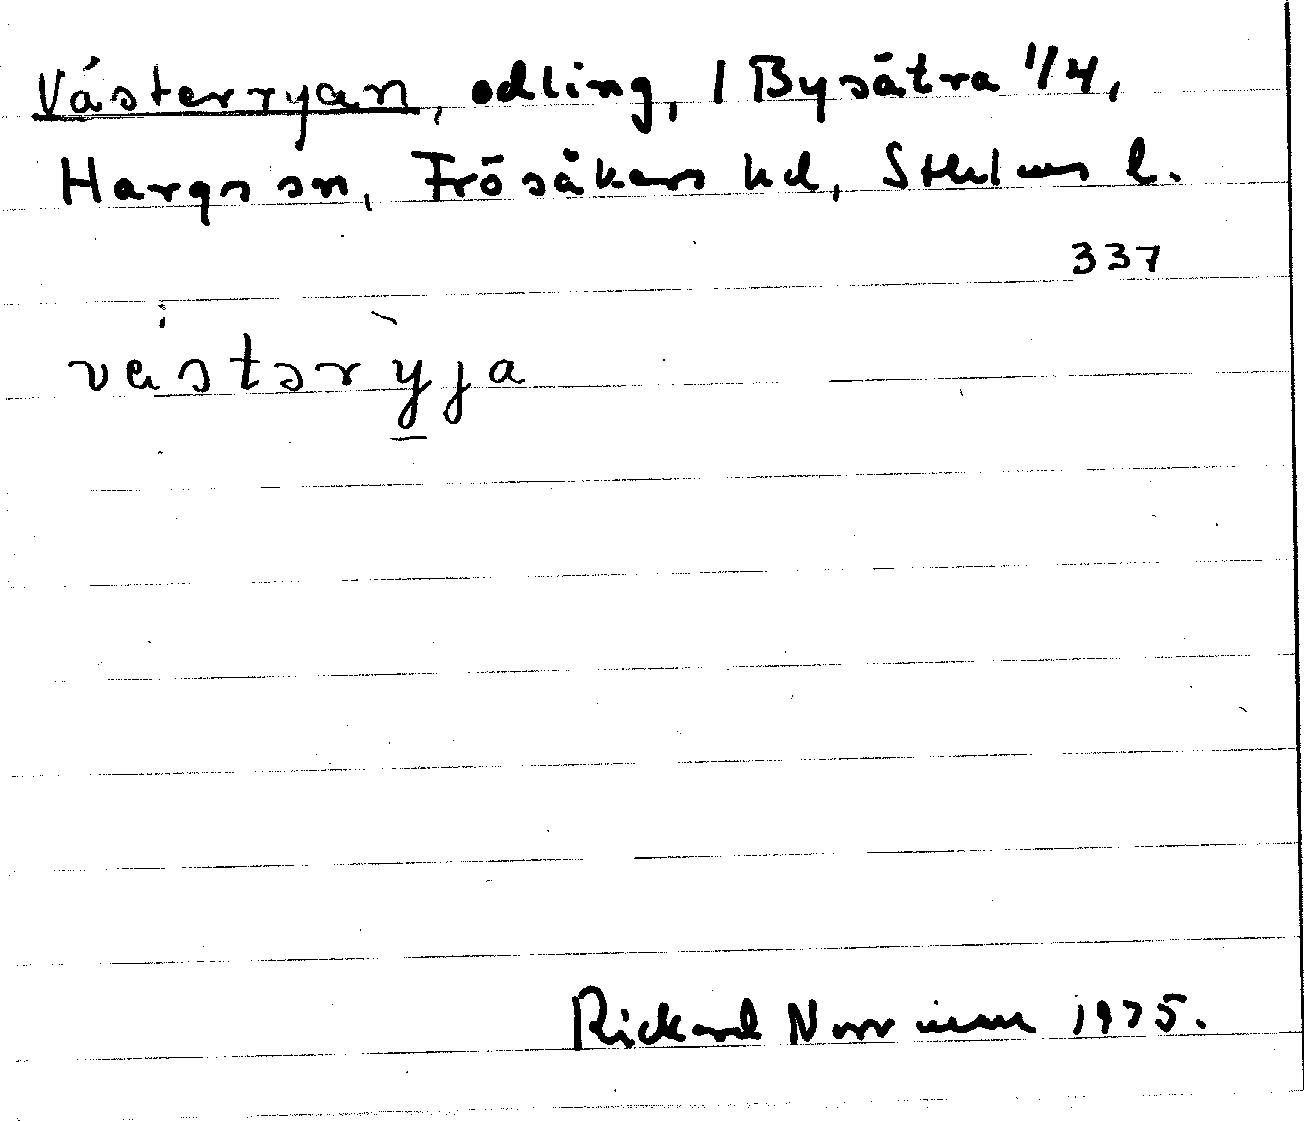 Västerryan, odling, 1 Bysätra 1/4,
Hargs sn, Frösåkers hd, Sthlms l.
337
västəryja
Rickard Norrman 1935.